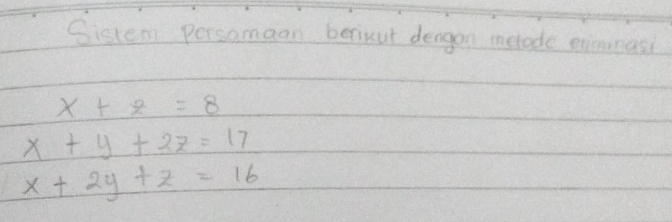 Sistem persamaan berikut dengan metode eliminasi
x + z = 8
x + y + 2z = 17
x + 2y + z = 16